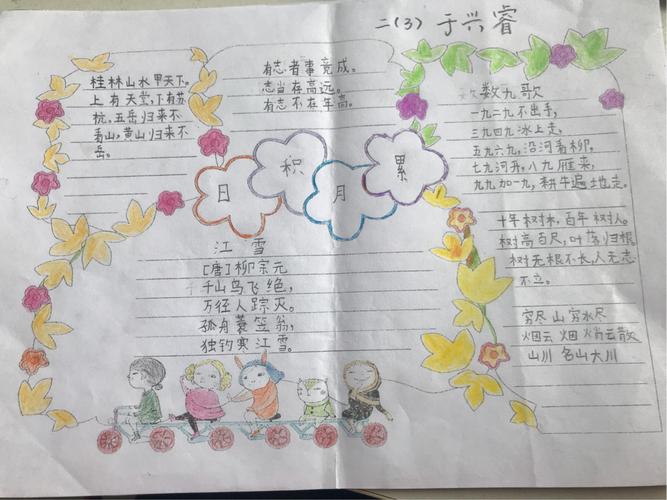 二(3) 于兴睿
桂林山水甲天下。
上有天堂,下有苏
杭,五岳归来不
看山,黄山归来不
岳。
有志者事竟成。
志当存高远。
有志不在年高。
日积月累
数九歌
一九二九不出手,
三九四九冰上走,
五九六九,沿河看柳,
七九河开,八九雁来,
九九加一九,耕牛遍地走。
十年树木,百年树人。
树高百尺,叶落归根
树无根不长,人无志
不立。
穷尽 山穷水尽
烟云 烟消云散
山川 名山大川
江雪
[唐]柳宗元
千山鸟飞绝,
万径人踪灭。
孤舟蓑笠翁,
独钓寒江雪。